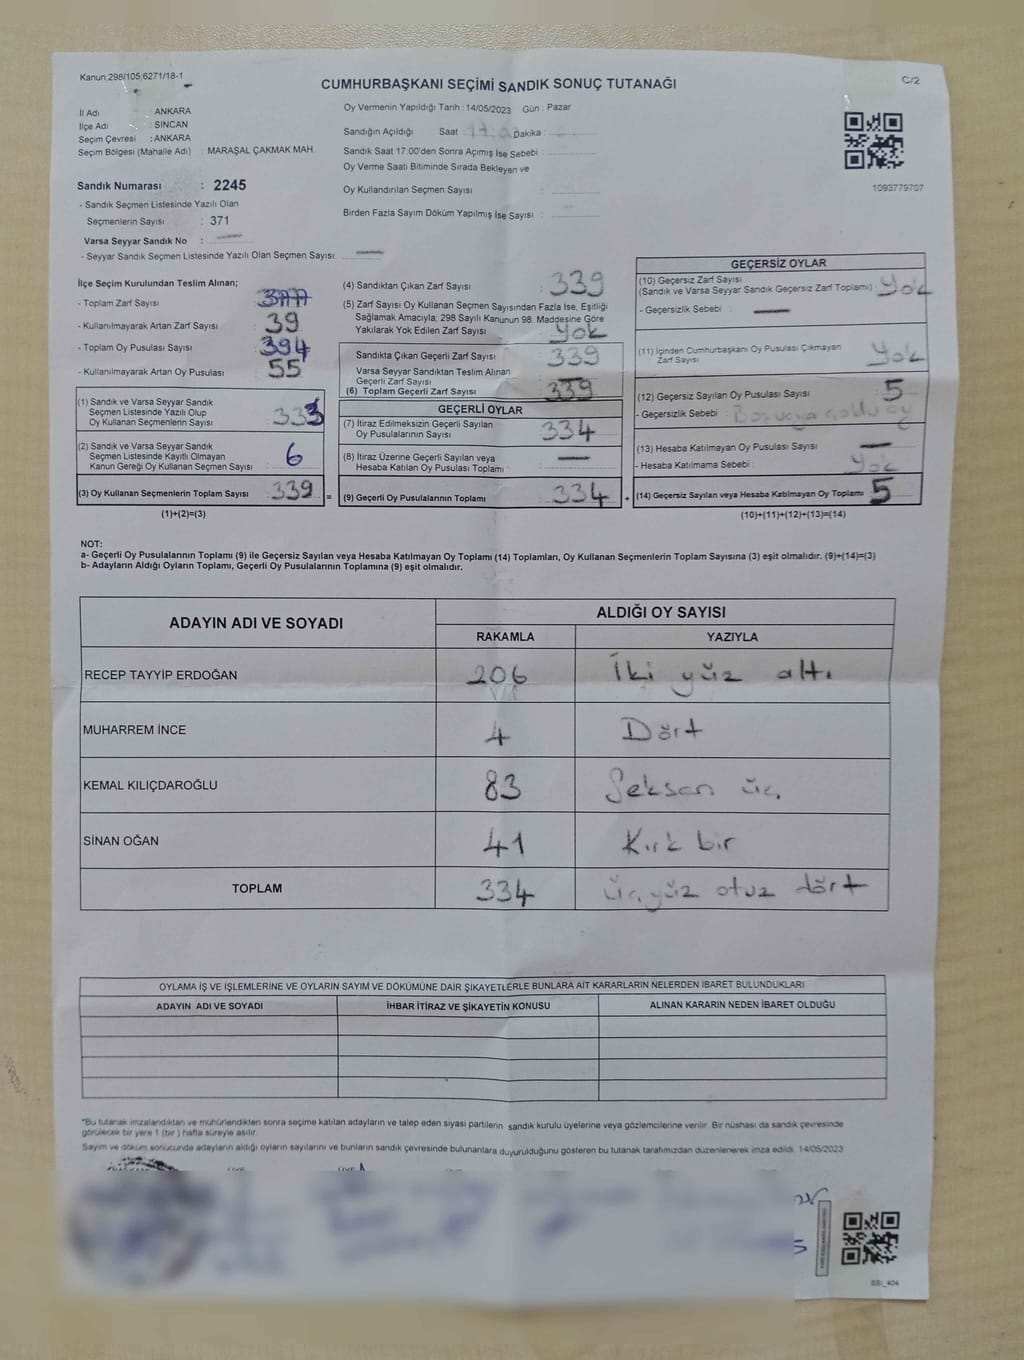 Kanun:298/105,6271/18-1
C/2
CUMHURBAŞKANI SEÇİMİ SANDIK SONUÇ TUTANAĞI
İl Adı : ANKARA
İlçe Adı : SİNCAN
Seçim Çevresi : ANKARA
Seçim Bölgesi (Mahalle Adı) : MARAŞAL ÇAKMAK MAH.
Sandık Numarası : 2245
- Sandık Seçmen Listesinde Yazılı Olan
Seçmenlerin Sayısı : 371
Varsa Seyyar Sandık No :
- Seyyar Sandık Seçmen Listesinde Yazılı Olan Seçmen Sayısı:
Oy Vermenin Yapıldığı Tarih : 14/05/2023 Gün : Pazar
Sandığın Açıldığı Saat : 17 Dakika :
Sandık Saat 17:00'den Sonra Açımış İse Sebebi :
Oy Verme Saati Bitiminde Sırada Bekleyen ve
Oy Kullandırılan Seçmen Sayısı :
Birden Fazla Sayım Döküm Yapılmış İse Sayısı :
1093779707
İlçe Seçim Kurulundan Teslim Alınan;
- Toplam Zarf Sayısı
- Kullanılmayarak Artan Zarf Sayısı : 39
- Toplam Oy Pusulası Sayısı : 394
- Kullanılmayarak Artan Oy Pusulası : 55
(1) Sandık ve Varsa Seyyar Sandık
Seçmen Listesinde Yazılı Olup
Oy Kullanan Seçmenlerin Sayısı : 333
(2) Sandık ve Varsa Seyyar Sandık
Seçmen Listesinde Kayıtlı Olmayan
Kanun Gereği Oy Kullanan Seçmen Sayısı : 6
(3) Oy Kullanan Seçmenlerin Toplam Sayısı : 339 =
(1)+(2)=(3)
(4) Sandıktan Çıkan Zarf Sayısı : 339
(5) Zarf Sayısı Oy Kullanan Seçmen Sayısından Fazla İse, Eşitliği
Sağlamak Amacıyla; 298 Sayılı Kanunun 98. Maddesine Göre
Yakılarak Yok Edilen Zarf Sayısı : Yok
Sandıkta Çıkan Geçerli Zarf Sayısı : 339
Varsa Seyyar Sandıktan Teslim Alınan
Geçerli Zarf Sayısı
(6) Toplam Geçerli Zarf Sayısı : 339
GEÇERLİ OYLAR
(7) İtiraz Edilmeksizin Geçerli Sayılan
Oy Pusulalarının Sayısı : 334
(8) İtiraz Üzerine Geçerli Sayılan veya
Hesaba Katılan Oy Pusulası Toplamı :
(9) Geçerli Oy Pusulalarının Toplamı : 334 +
GEÇERSİZ OYLAR
(10) Geçersiz Zarf Sayısı
(Sandık ve Varsa Seyyar Sandık Geçersiz Zarf Toplamı) : Yok
- Geçersizlik Sebebi :
(11) İçinden Cumhurbaşkanı Oy Pusulası Çıkmayan
Zarf Sayısı : Yok
(12) Geçersiz Sayılan Oy Pusulası Sayısı : 5
- Geçersizlik Sebebi :
(13) Hesaba Katılmayan Oy Pusulası Sayısı :
- Hesaba Katılmama Sebebi : Yok
(14) Geçersiz Sayılan veya Hesaba Katılmayan Oy Toplamı : 5
(10)+(11)+(12)+(13)=(14)
NOT:
a- Geçerli Oy Pusulalarının Toplamı (9) ile Geçersiz Sayılan veya Hesaba Katılmayan Oy Toplamı (14) Toplamları, Oy Kullanan Seçmenlerin Toplam Sayısına (3) eşit olmalıdır. (9)+(14)=(3)
b- Adayların Aldığı Oyların Toplamı, Geçerli Oy Pusulalarının Toplamına (9) eşit olmalıdır.
ADAYIN ADI VE SOYADI
ALDIĞI OY SAYISI
RAKAMLA YAZIYLA
RECEP TAYYİP ERDOĞAN 206 İki yüz altı
MUHARREM İNCE 4 Dört
KEMAL KILIÇDAROĞLU 83 Seksen üç
SİNAN OĞAN 41 Kırk bir
TOPLAM 334 üçyüz otuz dört
OYLAMA İŞ VE İŞLEMLERİNE VE OYLARIN SAYIM VE DÖKÜMÜNE DAİR ŞİKAYETLERLE BUNLARA AİT KARARLARIN NELERDEN İBARET BULUNDUKLARI
ADAYIN ADI VE SOYADI İHBAR İTİRAZ VE ŞİKAYETİN KONUSU ALINAN KARARIN NEDEN İBARET OLDUĞU
*Bu tutanak imzalandıktan ve mühürlendikten sonra seçime katılan adayların ve talep eden siyasi partilerin sandık kurulu üyelerine veya gözlemcilerine verilir. Bir nüshası da sandık çevresinde
görülecek bir yere 1 (bir ) hafta süreyle asılır.
Sayım ve döküm sonucunda adayların aldığı oyların sayılarını ve bunların sandık çevresinde bulunanlara duyurulduğunu gösteren bu tutanak tarafımızdan düzenlenerek imza edildi. 14/05/2023
SSI_404